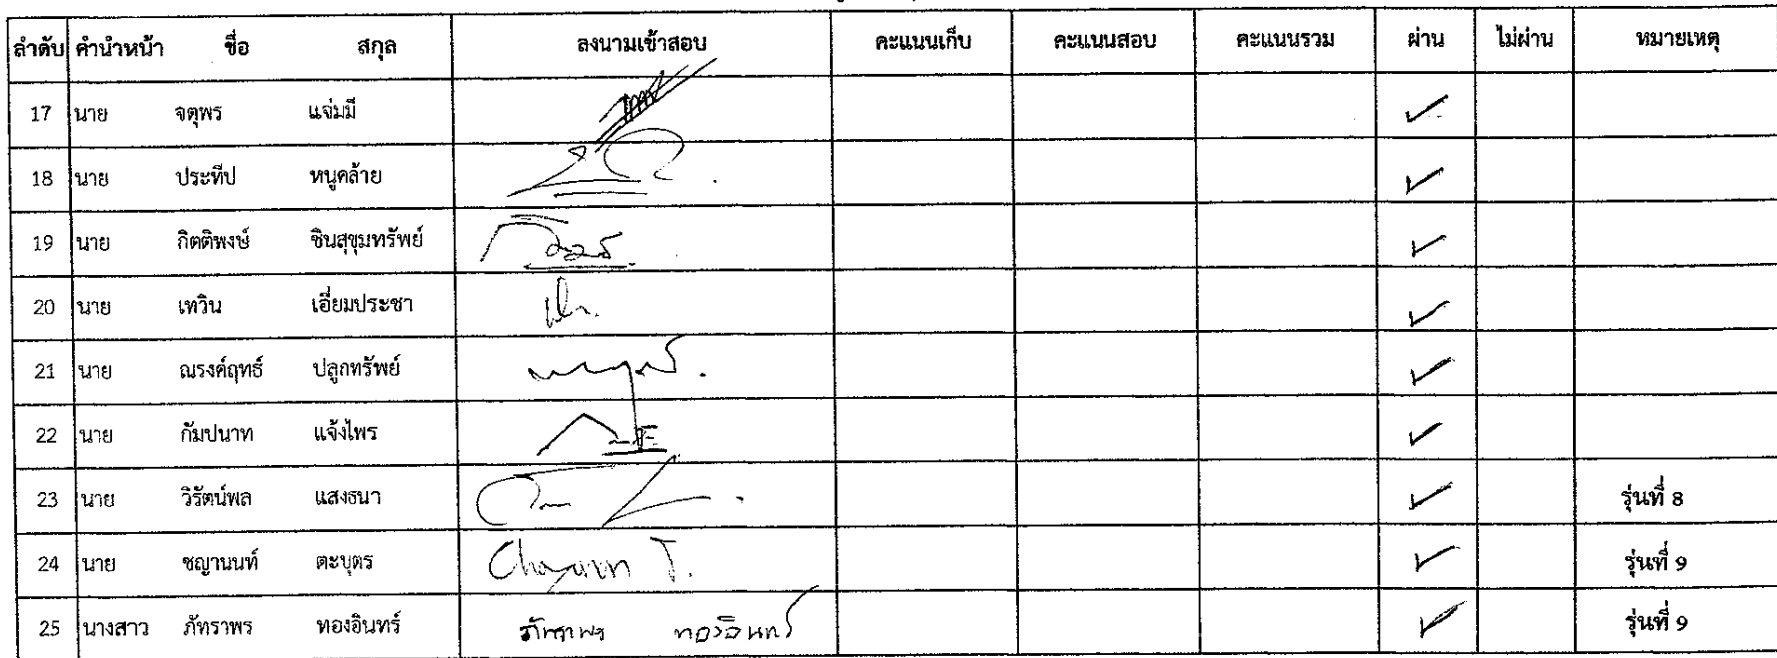 ลำดับ คำนำหน้า ชื่อ สกุล ลงนามเข้าสอบ คะแนนเก็บ คะแนนสอบ คะแนนรวม ผ่าน ไม่ผ่าน หมายเหตุ
17 นาย จตุพร แจ่มมี ✓
18 นาย ประทีป หนูคล้าย ✓
19 นาย กิตติพงษ์ ชินสุขุมทรัพย์ ✓
20 นาย เทวิน เอี่ยมประชา ✓
21 นาย ณรงค์ฤทธ์ ปลูกทรัพย์ ✓
22 นาย กัมปนาท แจ้งไพร ✓
23 นาย วิรัตน์พล แสงธนา ✓ รุ่นที่ 8
24 นาย ชญานนท์ ตะบุตร ✓ รุ่นที่ 9
25 นางสาว ภัทราพร ทองอินทร์ ภัทราพร ทองอินทร์ ✓ รุ่นที่ 9